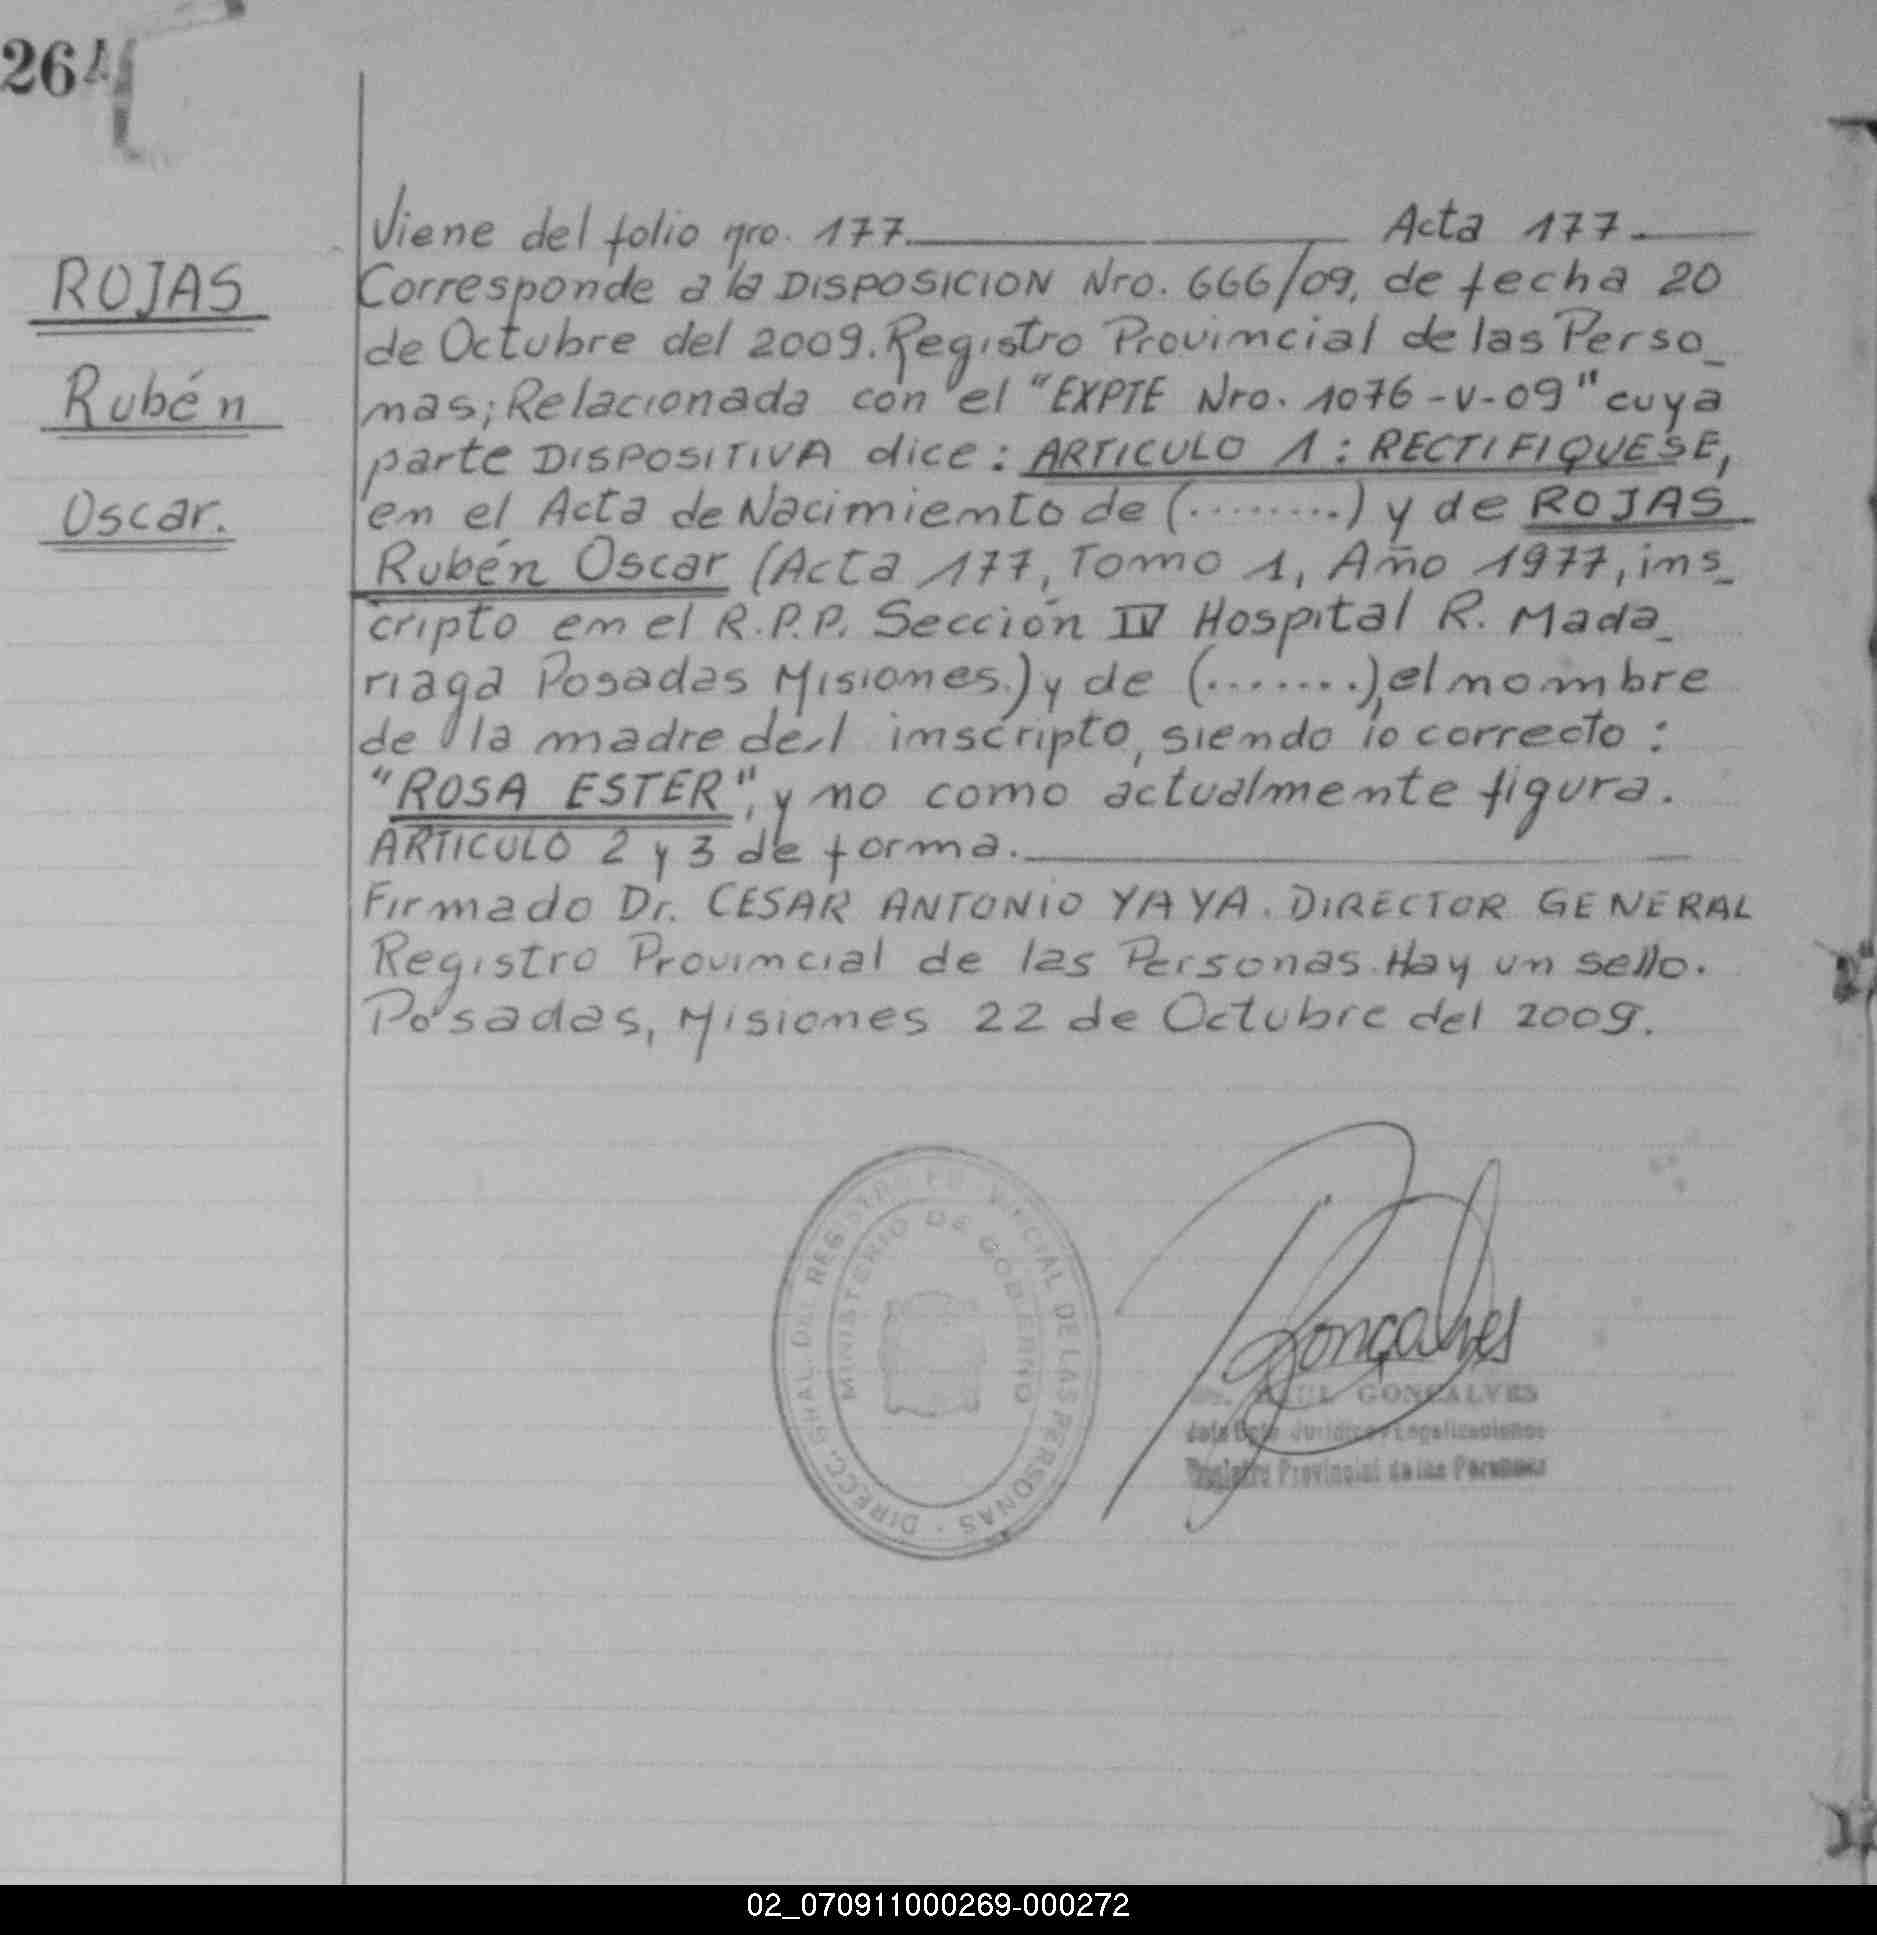 264
ROJAS
Rubén
Oscar.
Viene del folio nro. 177. Acta 177.
Corresponde a la DISPOSICION Nro. 666/09, de fecha 20
de Octubre del 2009. Registro Provincial de las Perso_
nas; Relacionada con el "EXPTE Nro. 1076-V-09" cuya
parte DISPOSITIVA dice: ARTICULO 1: RECTIFIQUESE,
en el Acta de Nacimiento de (........) y de ROJAS
Rubén Oscar (Acta 177, Tomo 1, Año 1977, ins_
cripto en el R.P.P. Sección IV Hospital R. Mada_
riaga Posadas Misiones.) y de (.......), el nombre
de la madre del inscripto, siendo lo correcto:
"ROSA ESTER", y no como actualmente figura.
ARTICULO 2 y 3 de forma.
Firmado Dr. CESAR ANTONIO YAYA. DIRECTOR GENERAL
Registro Provincial de las Personas. Hay un sello.
Posadas, Misiones 22 de Octubre del 2009.
DIRECC. GRAL. DEL REGISTRO PROVINCIAL DE LAS PERSONAS
MINISTERIO DE GOBIERNO
Gonçalves
RAUL GONCALVES
Jefe Dpto Jurídico y Legalizaciones
Registro Provincial de las Personas
02_070911000269-000272